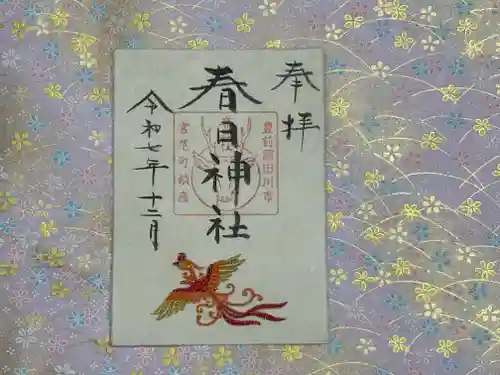 奉拝
豊前國田川市
春日神社
宮尾町鎮座
令和七年十二月